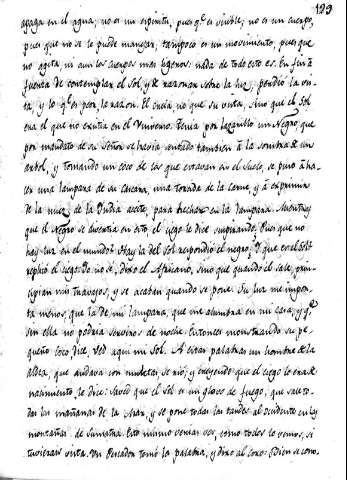 129
apaga en el agua, no es un espiritu, pues q.e es visible, no es un cuerpo,
pues que no se le puede manejar, tampoco es un movimiento, pues que
no agita ni aun los cuerpos mas ligeros: nada de todo esto es. En fin á
fuerza de contemplar el Sol, y de razonar sobre la luz, perdió la vis-
ta, y lo q.e es peor, la razon. El creia no que su vista, sino que el Sol
era el que no existia en el Universo. Tenia por Lazarillo un Negro, que
por mandato de su Señor se havia sentado tambien á la sombra de un
arbol, y tomando un coco de los que estavan en el suelo, se puso á ha-
cer una lampara de su cascara, una torcida de la Carne, y á exprimir
de la nuez de la Yndia aceite, para hechar en la lampara. Mientras
que el Negro se divertia en esto, el ciego le dice suspirando: Pues que no
hay luz en el mundo? Hay la del Sol respondió el negro. Y que es el Sol?
replicó el ciego. Yo no sé, dixo el Africano, sino que quando él sale, prin-
cipian mis travajos, y se acaban quando se pone. Su luz me impor-
ta menos, que la de mi lampara, que me alumbra en mi casa, y q.e
sin ella no podria serviros de noche. Entonces monstrando su pe-
queño coco dice ved aqui mi Sol. A estas palabras un hombre de la
aldea, que andava con muletas, se rió; y creyendo que el ciego lo era de
nacimiento, le dice: Saved que el Sol es un glovo de fuego, que sale to-
das las mañanas de la Mar, y se pone todas las tardes al occidente en las
montañas de Sumatra. Esto mismo veriais vos, como todos lo vemos, si
tuvierais vista. Un Pescador tomó la palabra, y dixo al coxo: Bien se cono-